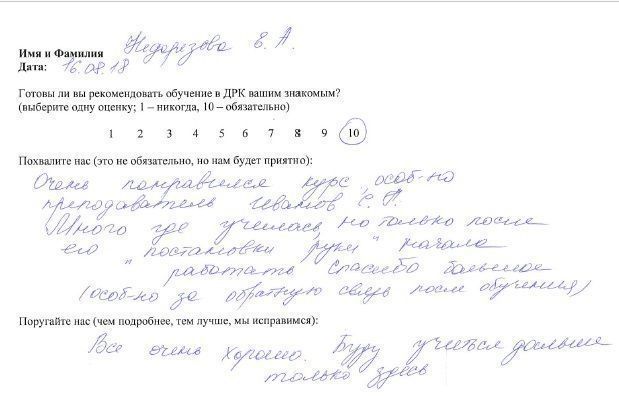 Имя и Фамилия Недорезова Е. А.
Дата: 16.08.18
Готовы ли вы рекомендовать обучение в ДРК вашим знакомым?
(выберите одну оценку; 1 – никогда, 10 – обязательно)
1 2 3 4 5 6 7 8 9 10
Похвалите нас (это не обязательно, но нам будет приятно):
Очень понравился курс, особ-но
преподаватель Иванов С. Г.
Много где училась, но только после
его „постановки руки" начала
работать Спасибо большое
(особ-но за обратную связь после обучения)
Поругайте нас (чем подробнее, тем лучше, мы исправимся):
Все очень хорошо. Буду учиться дальше
только здесь